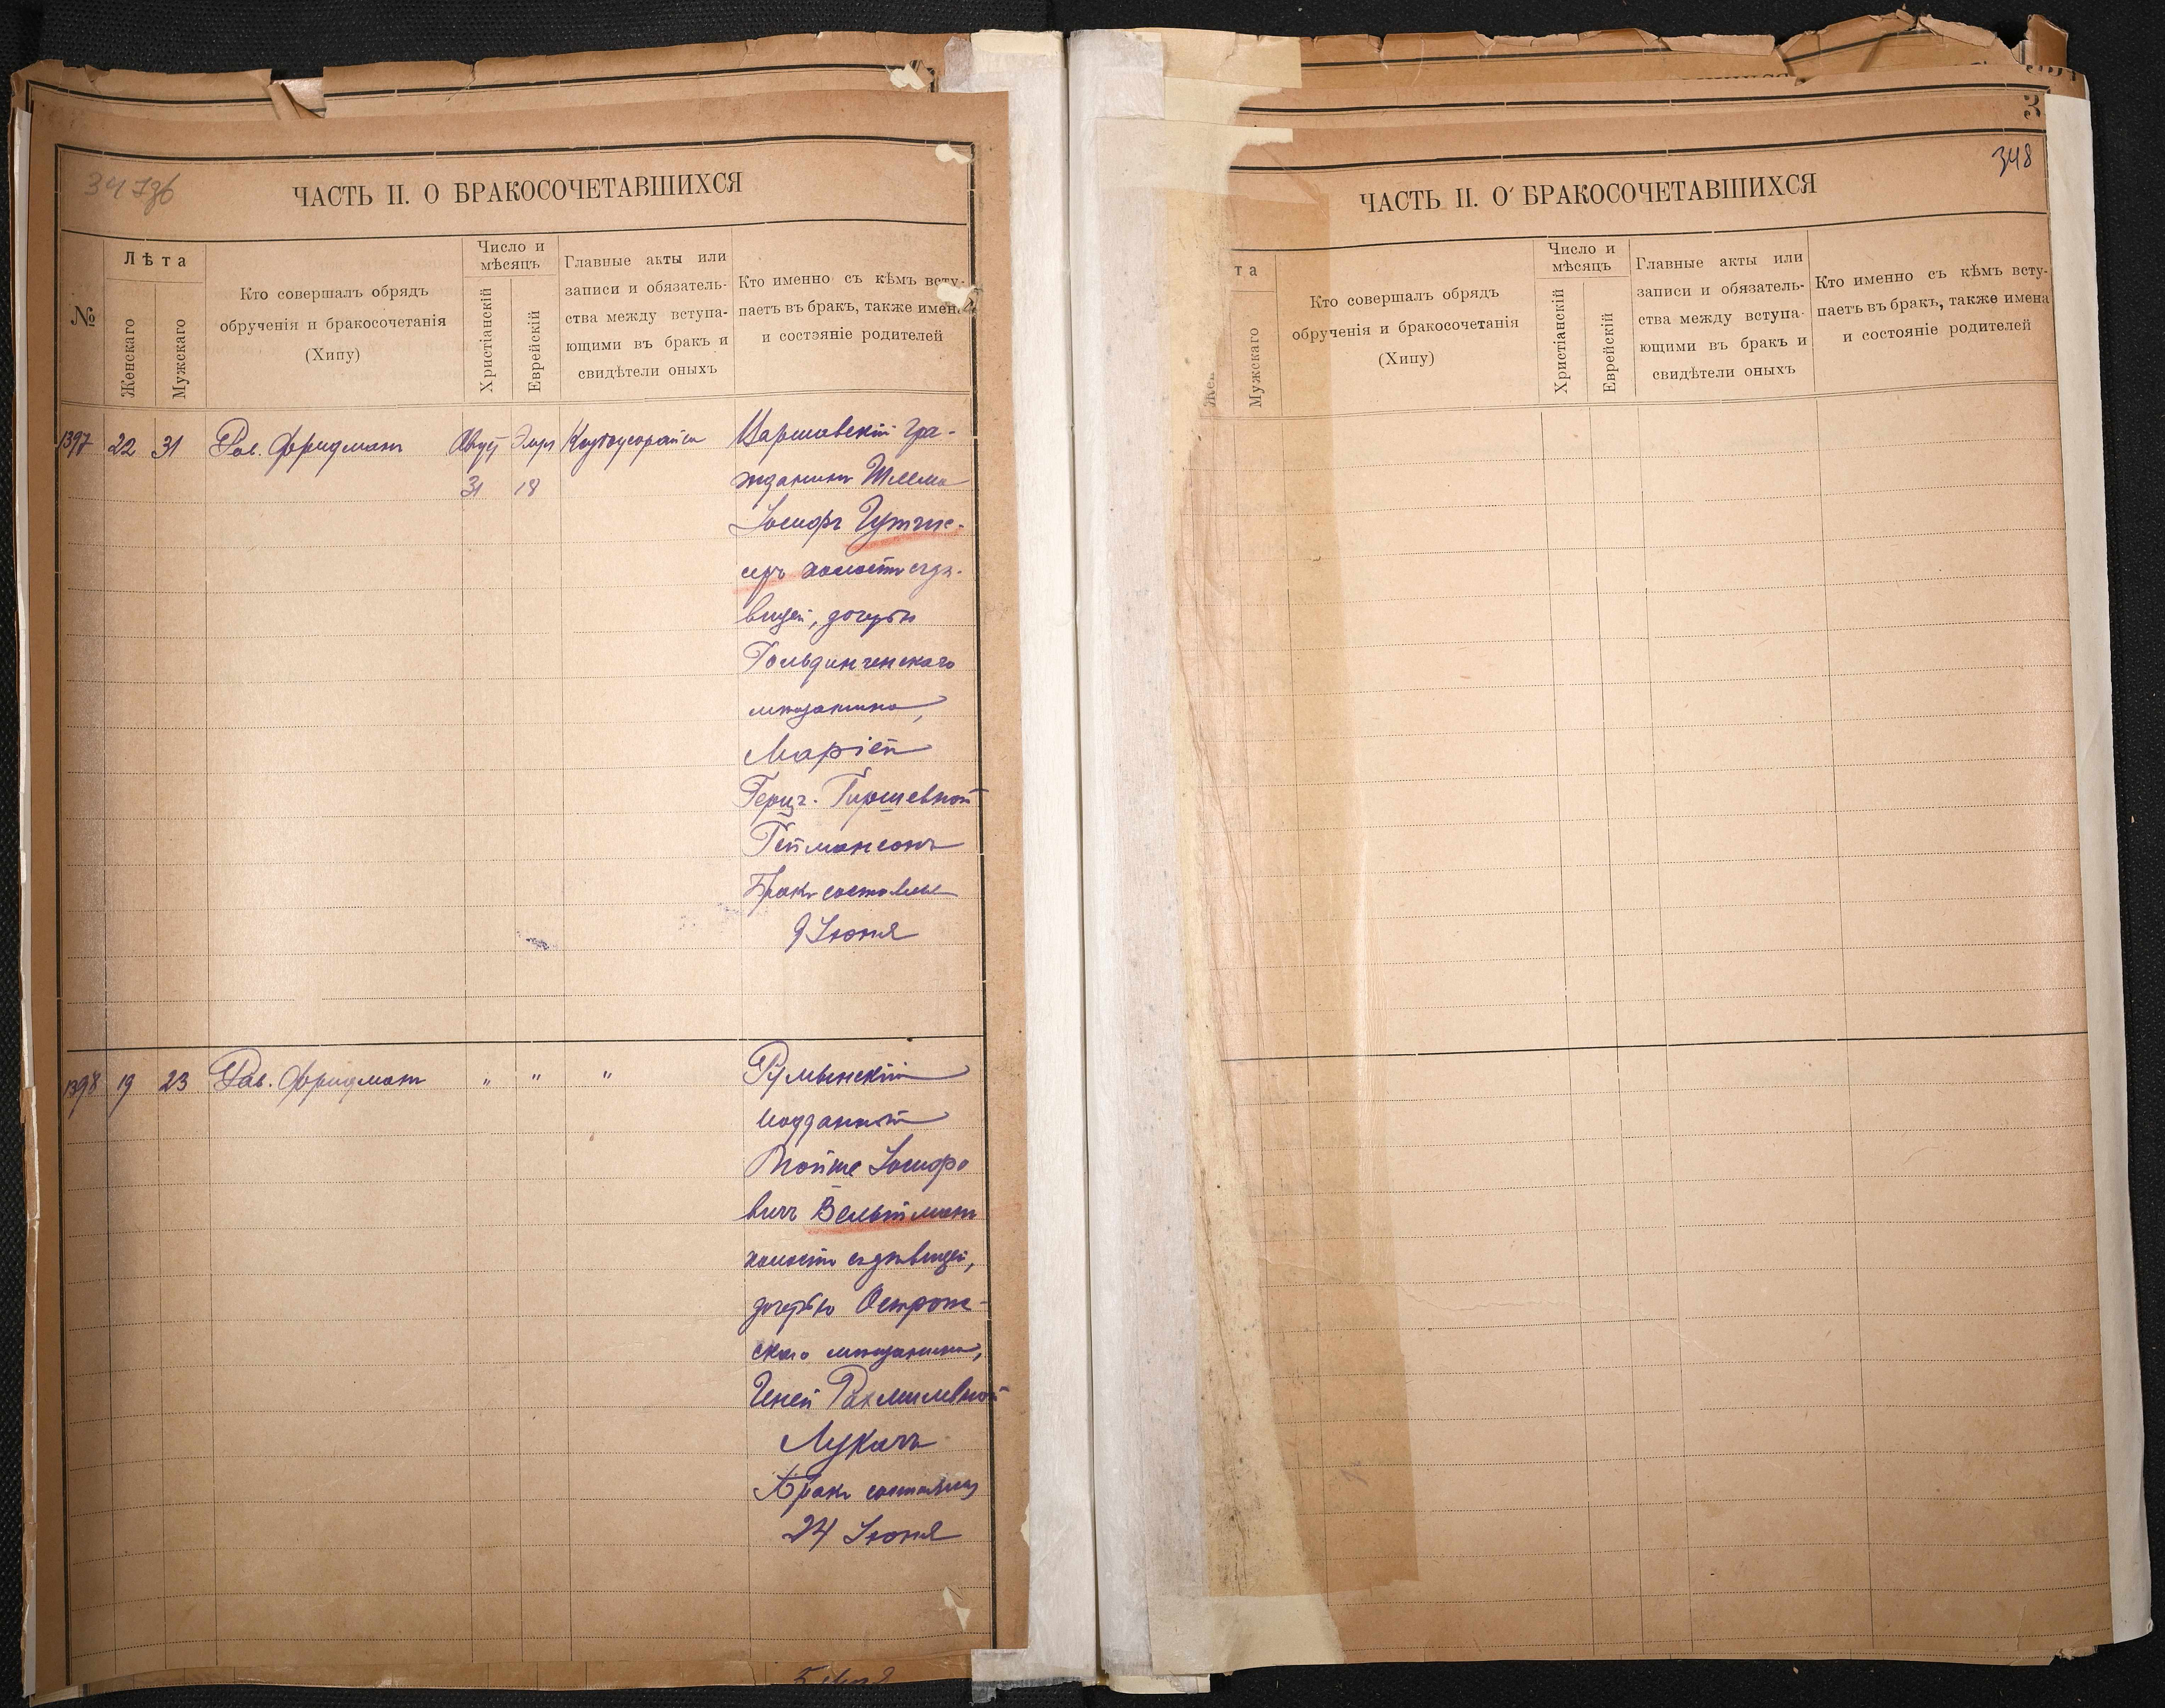 347об
ЧАСТЬ II. О БРАКОСОЧЕТАВШИХСЯ
№
Лѣта
Женскаго
Мужскаго
Кто совершалъ обрядъ
обрученія и бракосочетанія
(Хипу)
Число и
мѣсяцъ
Христіанскій
Еврейскій
Главные акты или
записи и обязатель-
ства между вступа-
ющими въ бракъ и
свидѣтели оныхъ
Кто именно съ кѣмъ всту-
паетъ въ бракъ, также имена
и состояніе родителей
1397 22 31 Рав. Фридманъ
31 18
Варшавскій гра-
жданинъ Шлема
Іосифъ Гутгис-
серъ холостъ съ дѣ-
вицей, дочерью
Гольдингенскаго
мѣщанина,
Маріей
Герц. Гиршевной
Геймансонъ
Бракъ состоялся
9 Іюня
1398 19 23 Рав. Фридманъ " " "
Румынскій
подданный
Мойше Іосифо
вичъ Вельтманъ
холостъ съ дѣвицей,
дочерью Острож-
скаго мѣщанина,
Геней Рахмилевной
Лукачъ
Бракъ состоялся
24 Іюня
3
348
ЧАСТЬ II. О БРАКОСОЧЕТАВШИХСЯ
та
Мужскаго
Кто совершалъ обрядъ
обрученія и бракосочетанія
(Хипу)
Число и
мѣсяцъ
Христіанскій
Еврейскій
Главные акты или
записи и обязатель-
ства между вступа-
ющими въ бракъ и
свидѣтели оныхъ
Кто именно съ кѣмъ всту-
паетъ въ бракъ, также имена
и состояніе родителей